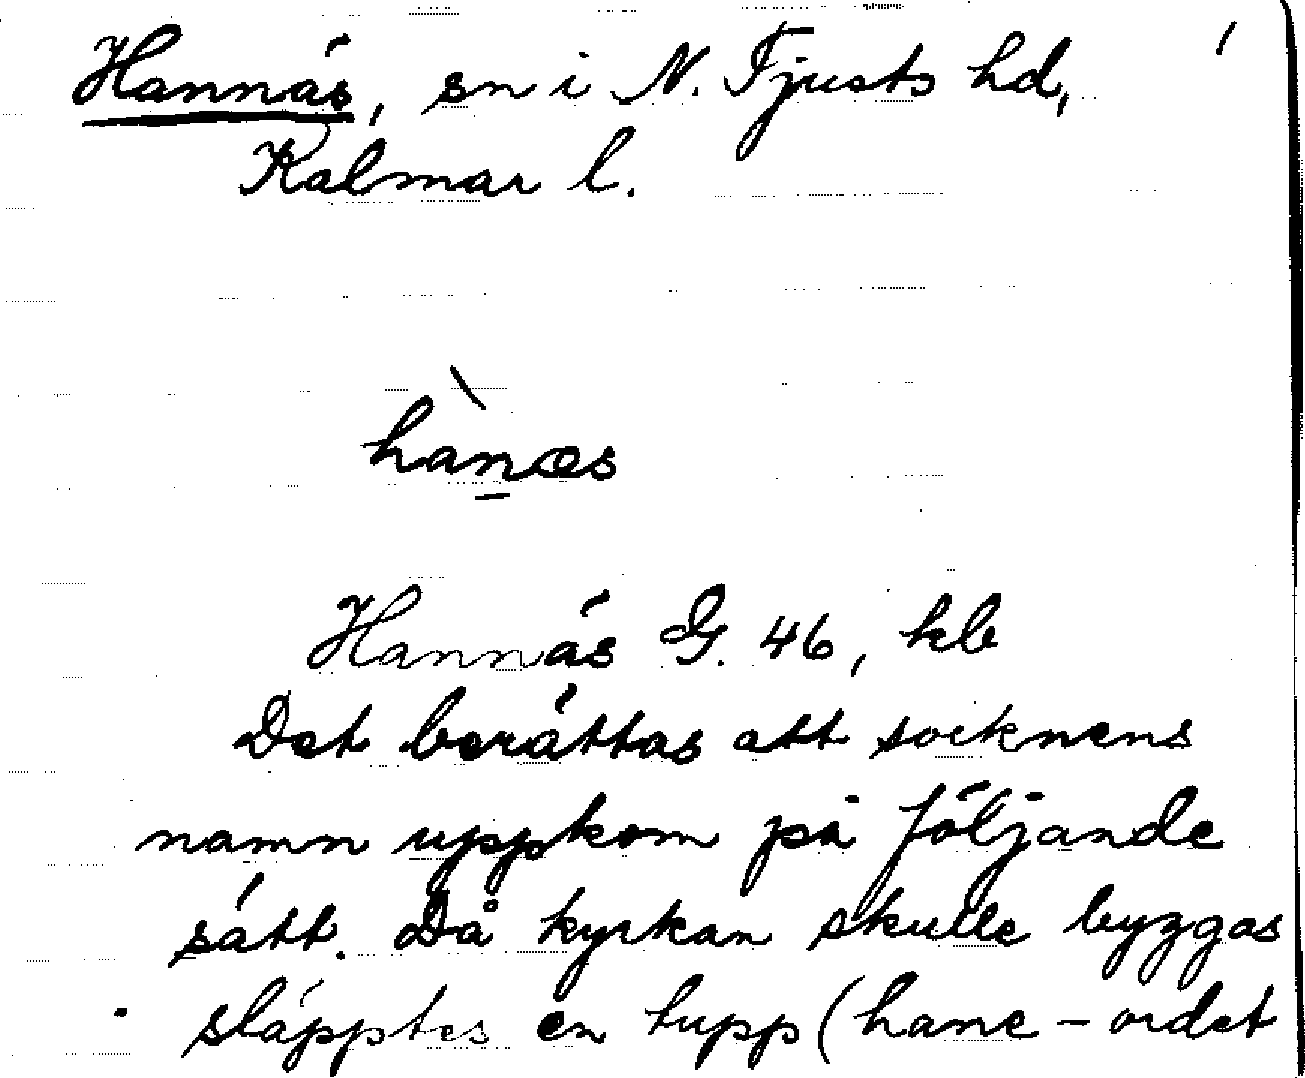 Hannäs, sn i N. Tjusts hd,
Kalmar l.
hànæs
Hannäs G. 46, kb
Det berättas att socknens
namn uppkom på följande
sätt. Då kyrkan skulle byggas
släpptes en tupp (hane - ordet